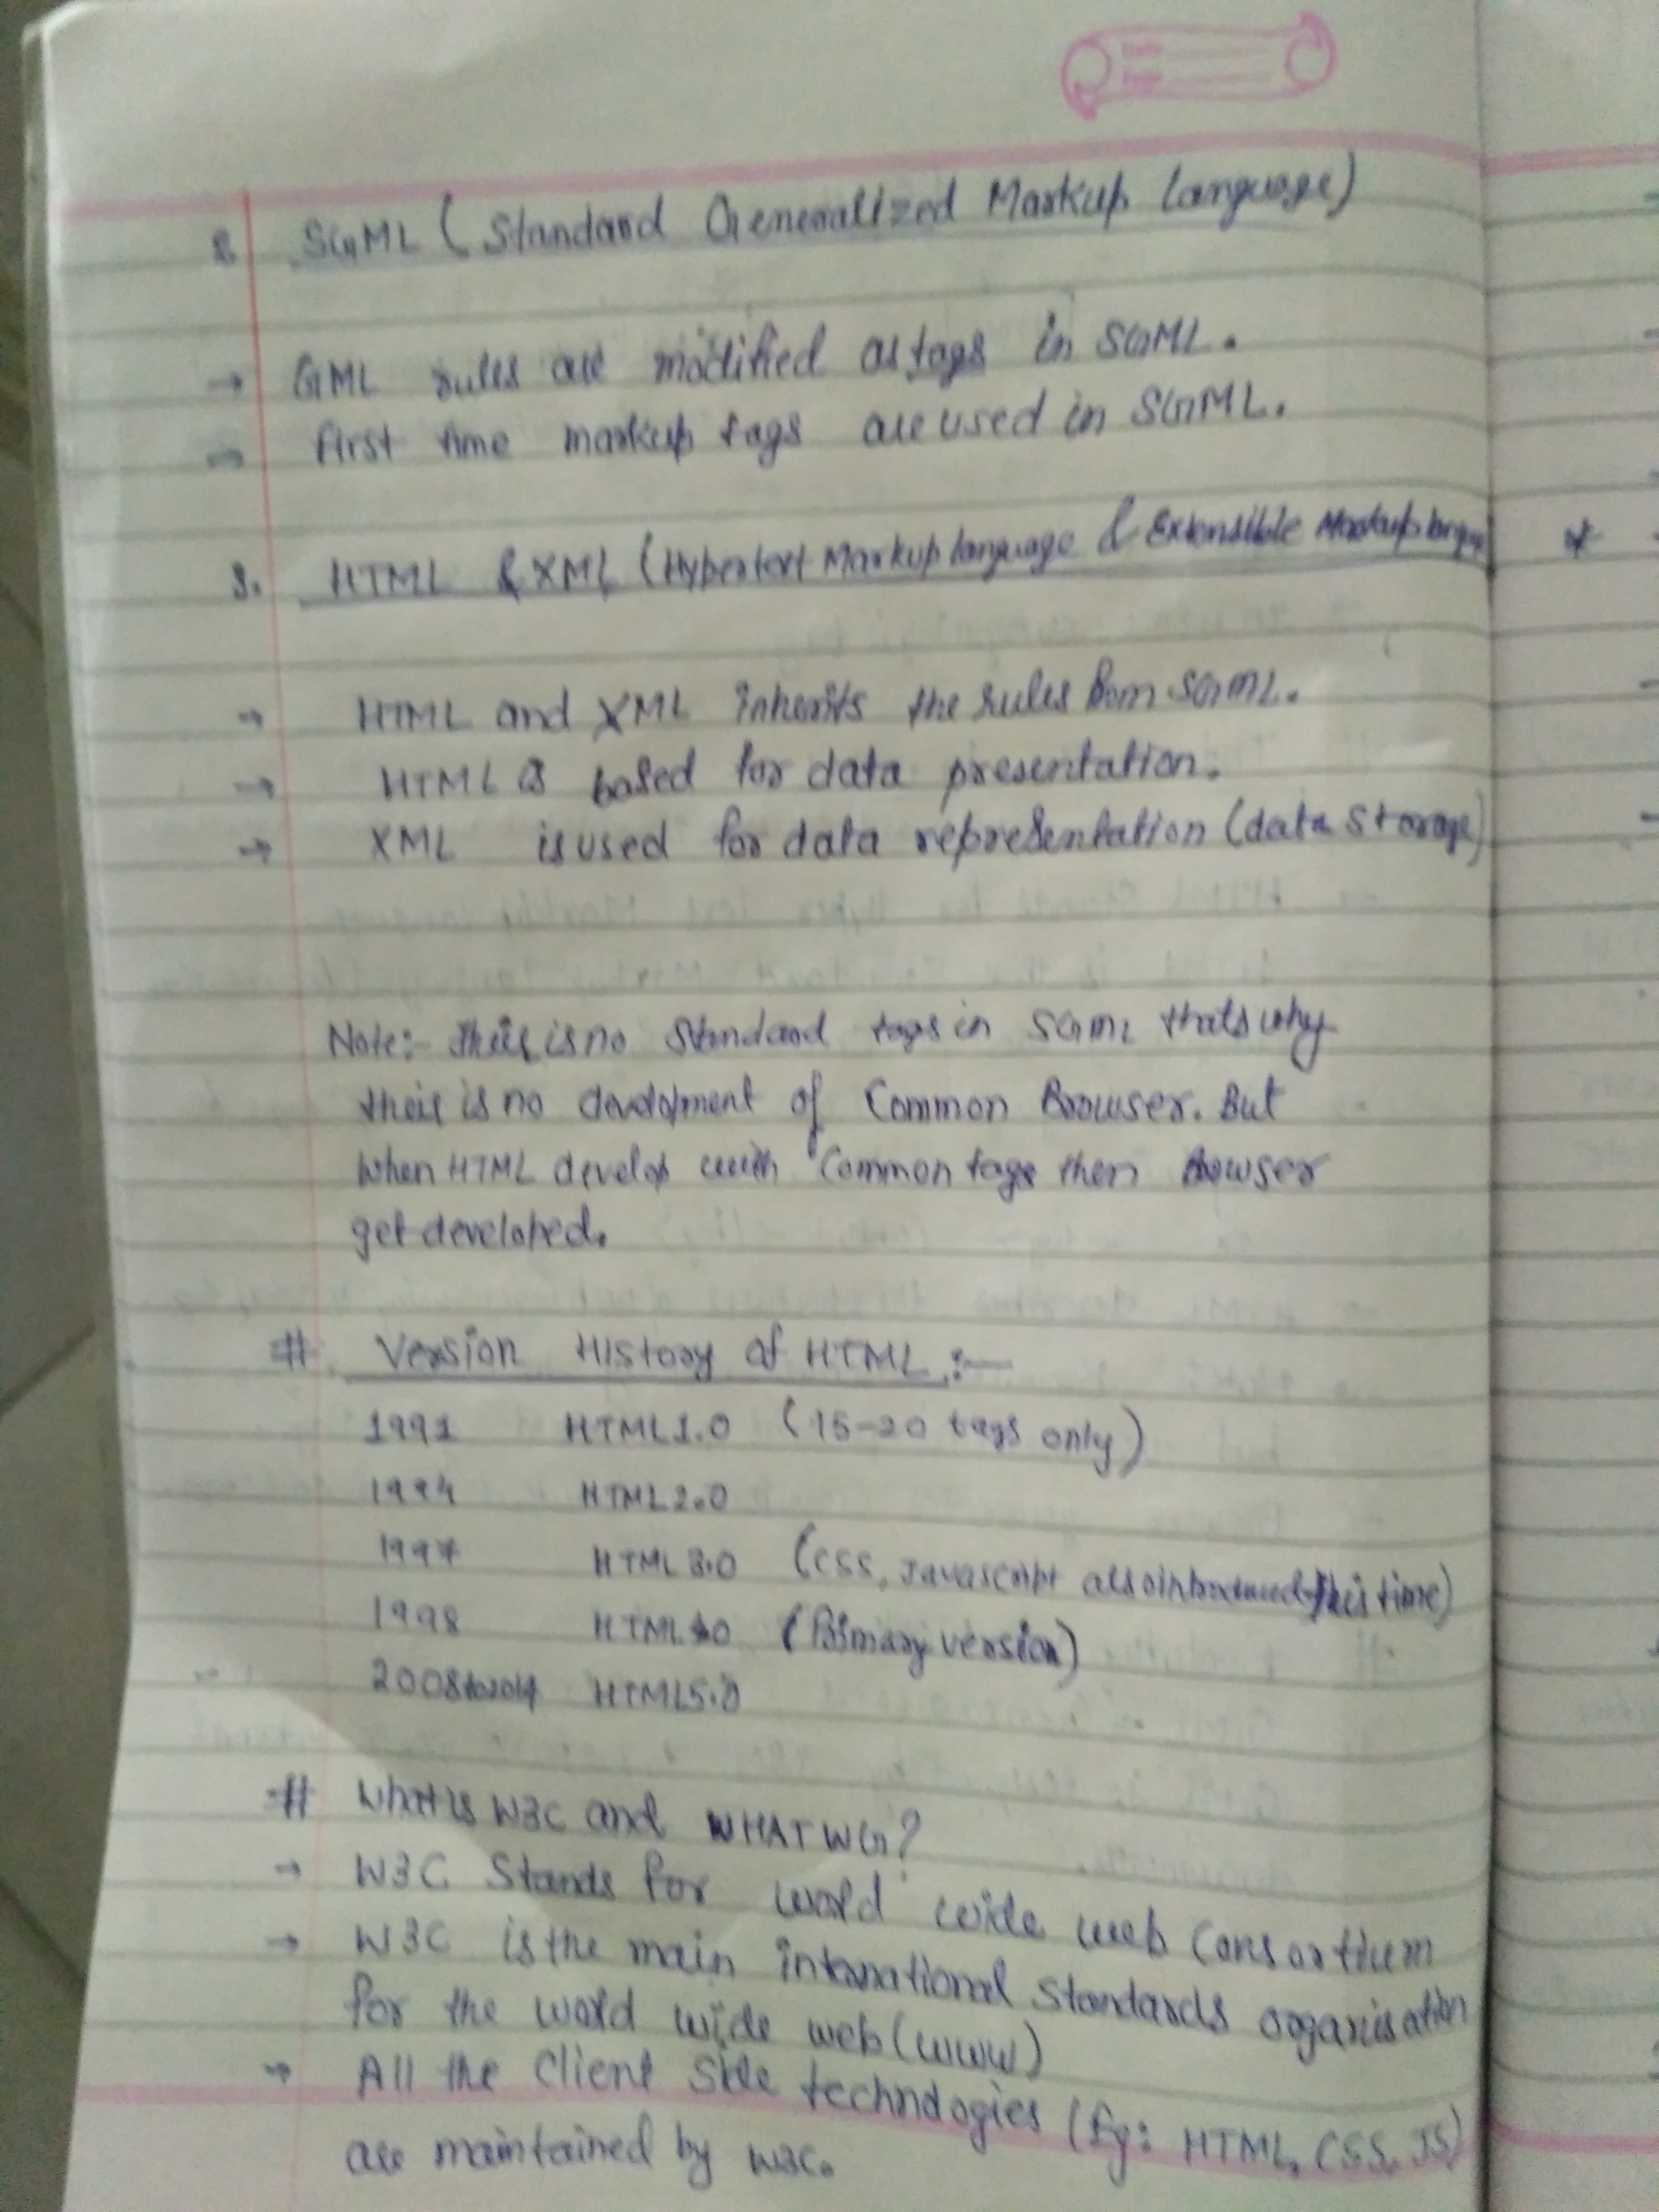 2. SGML (Standard Generalized Markup Language)
→ GML rules are modified as tags in SGML.
→ First time markup tags are used in SGML.
3. HTML & XML (Hypertext Markup language & Extensible Markup langu
→ HTML and XML inherits the rules from SGML.
→ HTML is based for data presentation.
→ XML is used for data representation (data storage)
Note:- their is no standard tags in SGML thats why
their is no development of Common Browser. But
when HTML develop with Common tags then Browser
get developed.
# Version History of HTML :-
1991 HTML1.0 (15-20 tags only)
1994 HTML2.0
1997 HTML3.0 (CSS, Javascript also introduced this time)
1998 HTML4.0 (Primary version)
2008 to 2014 HTML5.0
# What is W3C and WHATWG?
→ W3C Stands for world wide web Consortium
→ W3C is the main international Standards organisation
for the world wide web (WWW)
→ All the Client Side technologies (Eg: HTML, CSS, JS)
are maintained by W3C.